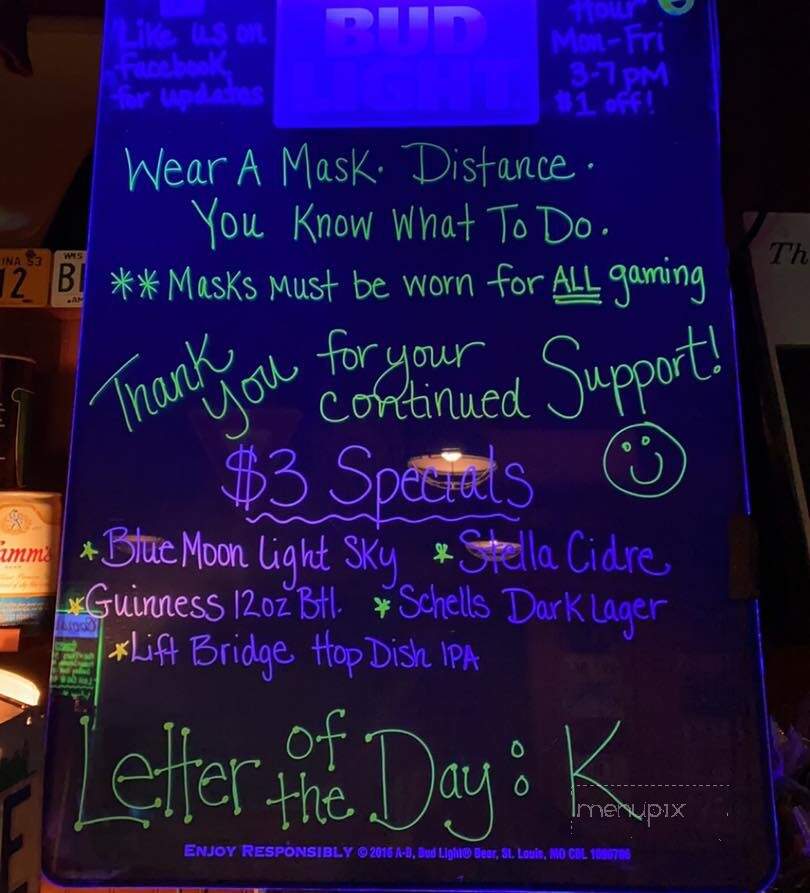 Like us on
Facebook
for updates
BUD
LIGHT
Hour
Mon-Fri
3-7pm
$1 off!
Wear A Mask. Distance.
You Know What To Do.
** Masks must be worn for ALL gaming
Thank you for your continued Support!
$3 Specials
* Blue Moon Light Sky * Stella Cidre
* Guinness 12oz Btl. * Schells Dark Lager
* Lift Bridge Hop Dish IPA
Letter of the Day: K
menupix
ENJOY RESPONSIBLY © 2016 A-B, Bud Light® Beer, St. Louis, MO
INA 53
12
WIS
B
Th
amm's